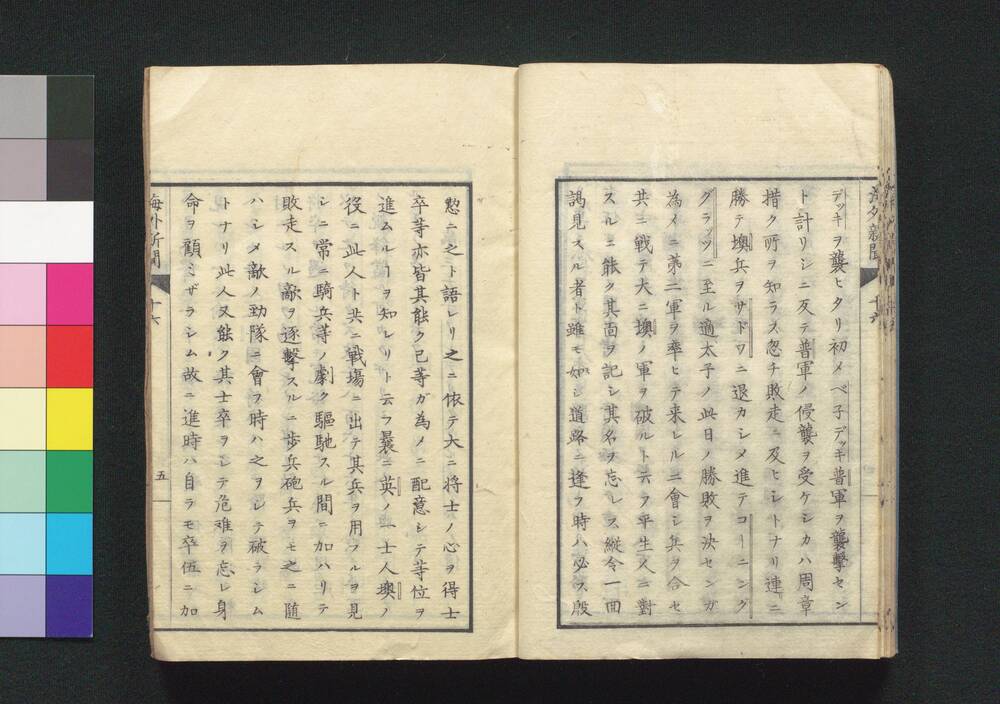 デッキヲ襲ヒタリ初メベ子デッキ普軍ヲ襲撃セン
ト計リシニ反テ普軍ノ侵襲ヲ受ケシカハ周章
措ク所ヲ知ラス忽チ敗走ニ及ヒシトナリ連ニ
勝テ墺兵ヲサドワニ退カシメ進テコーニング
グラッツニ至ル適太子ノ此日ノ勝敗ヲ決センガ
為メニ第二軍ヲ率ヒテ来レルニ會シ兵ヲ合セ
共ニ戦テ大ニ墺ノ軍ヲ破ルト云フ平生人ニ對
スルニ能ク其面ヲ記シ其名ヲ忘レス縦令一面
謁見スル者ト雖モ如シ道路ニ逢フ時ハ必ス慇
懃ニ之ト語レリ之ニ依テ大ニ将士ノ心ヲ得士
卒等亦皆其能ク己等ガ為メニ配意シテ等位ヲ
進ムルヿヲ知レリト云フ曩ニ英ノ一士人墺ノ
役ニ此人ト共ニ戦場ニ出テ其兵ヲ用フルヲ見
シニ常ニ騎兵等ノ劇ク驅馳スル間ニ加ハリテ
敗走スル敵ヲ逐撃スルニ歩兵砲兵ヲモ之ニ随
ハシメ敵ノ勁隊ニ會フ時ハ之ヲシテ破ラシム
トナリ此人又能ク其士卒ヲシテ危难ヲ忘レ身
命ヲ顧ミザラシム故ニ進時ハ自ラモ卒伍ニ加
海外新聞
十六
五